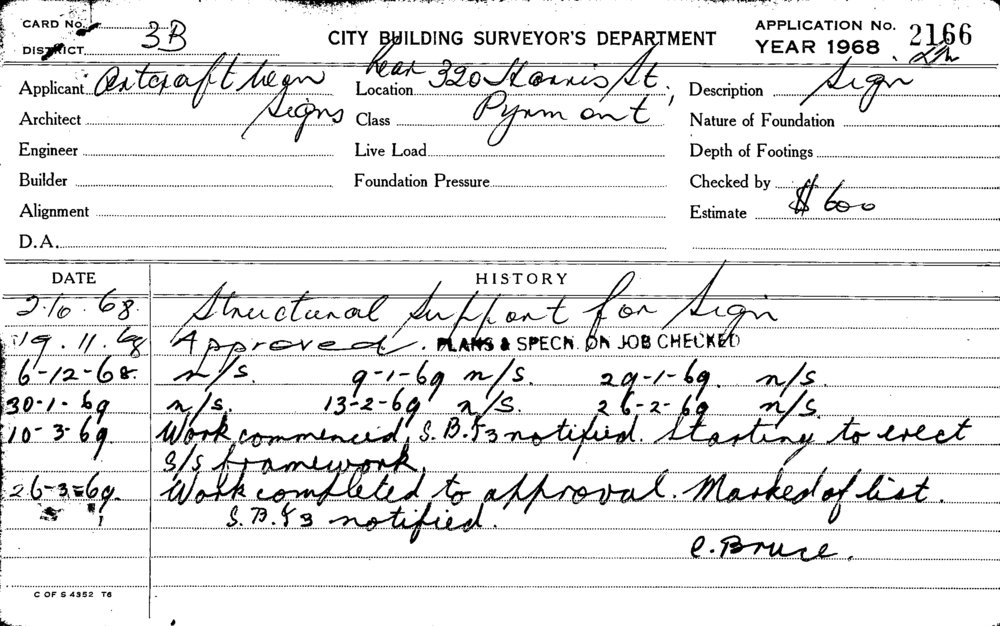 CARD No.
DISTRICT 3B
CITY BUILDING SURVEYOR'S DEPARTMENT
APPLICATION No. 2166
YEAR 1968
Applicant Artcraft Neon Signs
Location Rear 320 Harris St, Pyrmont
Description Sign
Architect
Class
Nature of Foundation
Engineer
Live Load
Depth of Footings
Builder
Foundation Pressure
Checked by
Alignment
Estimate $600
D.A.
DATE HISTORY
2.10.68 Structural Support for Sign
19.11.68 Approved. PLANS & SPECN. ON JOB CHECKED
6-12-68. n/s. 9-1-69 n/s. 29-1-69. n/s.
30-1-69 n/s. 13-2-69 n/s. 26-2-69 n/s.
10-3-69. Work commenced, S.B.F3 notified. Starting to erect
S/S framework.
26-3-69. Work completed to approval. Marked of list.
S.B.F3 notified.
C. Bruce.
C OF S 4352 T6